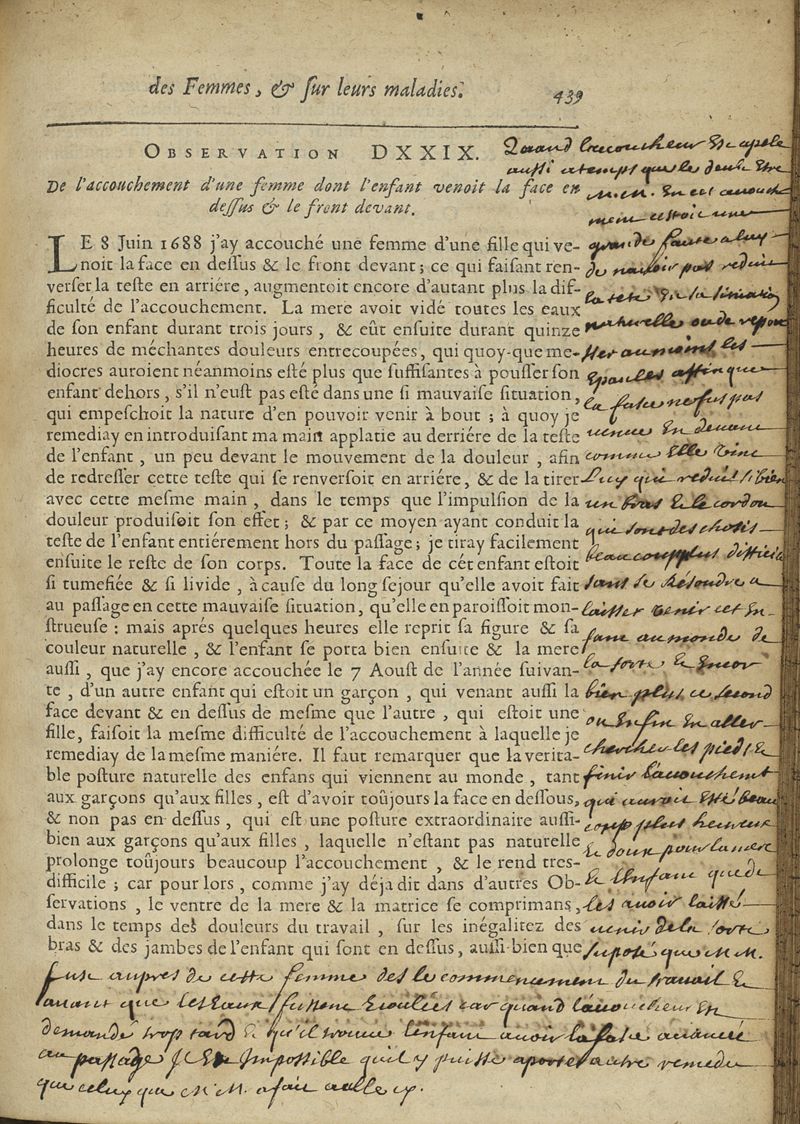 des Femmes, & sur leurs maladies.
439
OBSERVATION DXXIX.
De l'accouchement d'une femme dont l'enfant venoit la face en
dessus & le front devant.
LE 8 Juin 1688 j'ay accouché une femme d'une fille qui ve-
noit la face en dessus & le front devant; ce qui faisant ren-
verser la teste en arriére, augmentoit encore d'autant plus la dif-
ficulté de l'accouchement. La mere avoit vidé toutes les eaux
de son enfant durant trois jours, & eût ensuite durant quinze
heures de méchantes douleurs entrecoupées, qui quoy-que me-
diocres auroient néanmoins esté plus que suffisantes à pousser son
enfant dehors, s'il n'eust pas esté dans une si mauvaise situation,
qui empeschoit la nature d'en pouvoir venir à bout; à quoy je
remediay en introduisant ma main applatie au derriére de la teste
de l'enfant, un peu devant le mouvement de la douleur, afin
de redresser cette teste qui se renversoit en arriére, & de la tirer
avec cette mesme main, dans le temps que l'impulsion de la
douleur produisoit son effet; & par ce moyen ayant conduit la
teste de l'enfant entiérement hors du passage; je tiray facilement
ensuite le reste de son corps. Toute la face de cét enfant estoit
si tumefiée & si livide, à cause du long sejour qu'elle avoit fait
au passage en cette mauvaise situation, qu'elle en paroissoit mon-
strueuse: mais aprés quelques heures elle reprit sa figure & sa
couleur naturelle, & l'enfant se porta bien ensuite & la mere
aussi, que j'ay encore accouchée le 7 Aoust de l'année suivan-
te, d'un autre enfant qui estoit un garçon, qui venant aussi la
face devant & en dessus de mesme que l'autre, qui estoit une
fille, faisoit la mesme difficulté de l'accouchement à laquelle je
remediay de la mesme maniére. Il faut remarquer que la verita-
ble posture naturelle des enfans qui viennent au monde, tant
aux garçons qu'aux filles, est d'avoir toûjours la face en dessous,
& non pas en dessus, qui est une posture extraordinaire aussi-
bien aux garçons qu'aux filles, laquelle n'estant pas naturelle
prolonge toûjours beaucoup l'accouchement, & le rend tres-
difficile; car pour lors, comme j'ay déja dit dans d'autres Ob-
servations, le ventre de la mere & la matrice se comprimans,
dans le temps des douleurs du travail, sur les inégalitez des
bras & des jambes de l'enfant qui sont en dessus, aussi-bien que
Quand lacoucheur Est apele
aussi atemps que le deust Etre
M.M. En cet acouche
ment cestoit une
grande faute a luy
de navoir pas reduit
la tete En sa situation
naturelle ou de repou
sser au moins les
Epaules affin que
la face ne fust pas
venue En devant
comme Elle vint
Luy qui reduit si bien
un bras & le cordon
qui sont des choses
beaucoup plus difficiles
sans se resoudre a
laisser venir cet En
fant au monde de
la sorte & Encor
bien plus ce second
ou Enfin En aller
chercher les pieds &
finir lacouchemt
qui auroit Esté beau
coup plus heureux
& doux pour la mere
& lEnfant que de
les avoir laissé
venir de la sorte
suposé que M.M.
fust aupres de cette femme des le commencement du travail &
avant que les Eaux fussent Ecoulées car quand lacoucheur En
demandé trop tard & qu'il trouve lenfant avoir la face avancée
au passage il Est Impossible quil y puisse aporter autre remede
que celuy que M.M. a fait a celle cy.